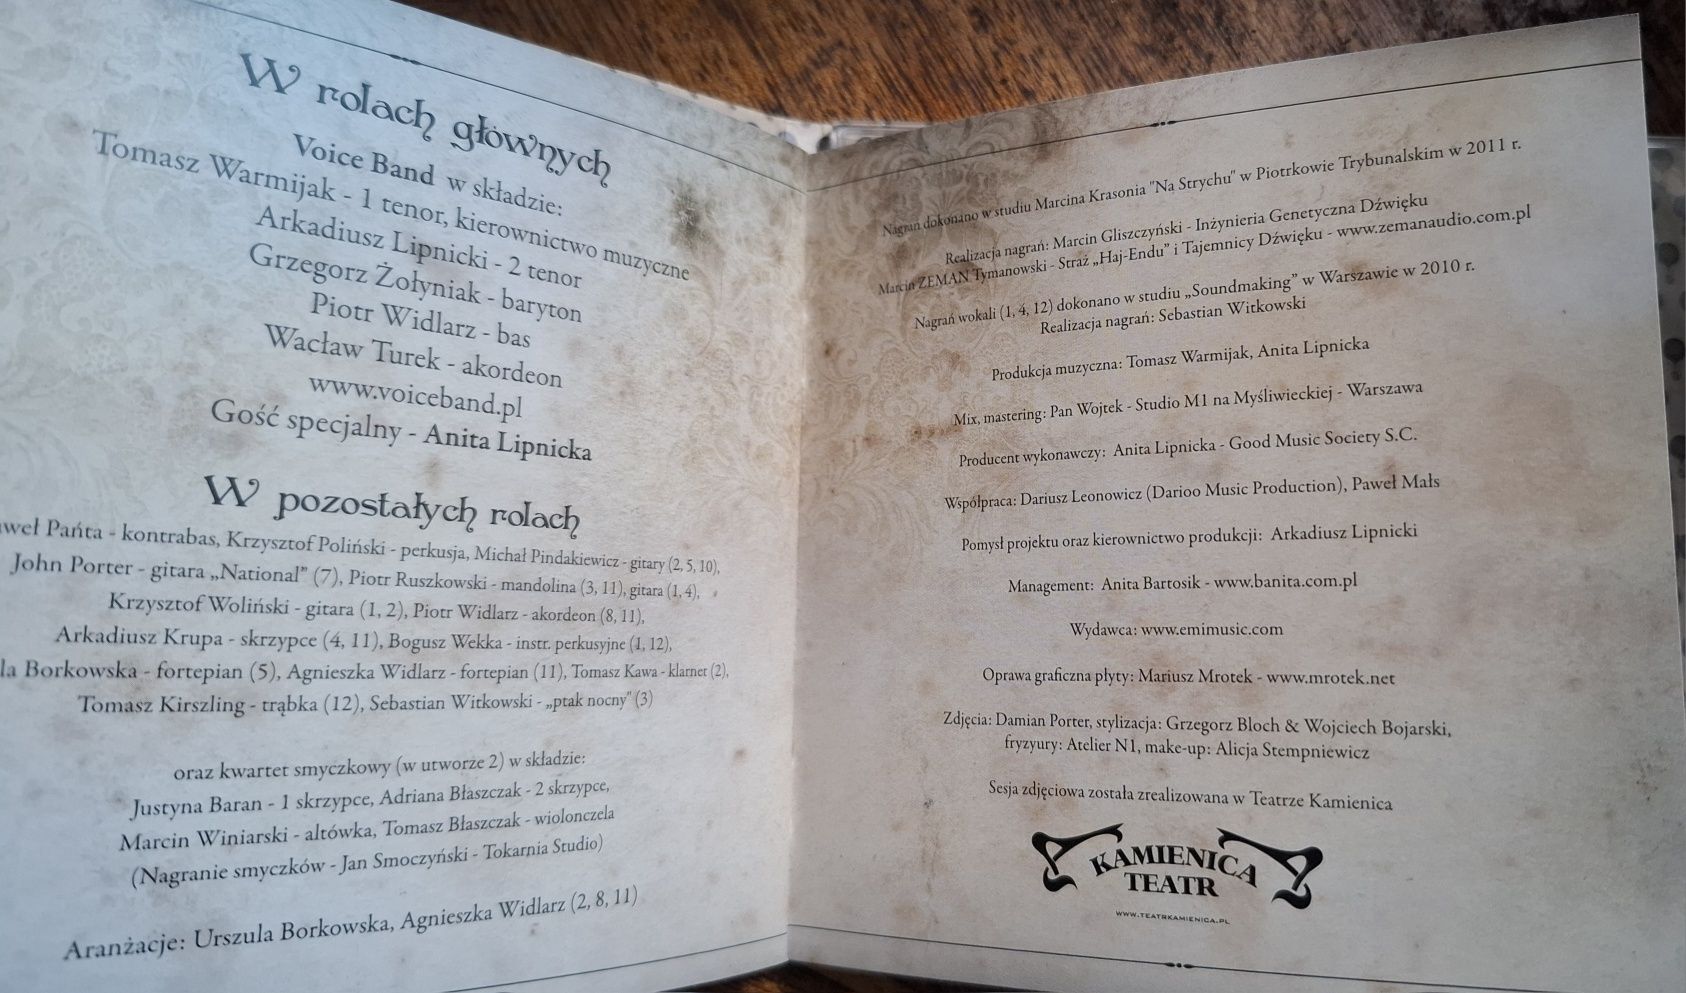 W rolach głównych
Voice Band w składzie:
Tomasz Warmijak - 1 tenor, kierownictwo muzyczne
Arkadiusz Lipnicki - 2 tenor
Grzegorz Żołyniak - baryton
Piotr Widlarz - bas
Wacław Turek - akordeon
www.voiceband.pl
Gość specjalny - Anita Lipnicka
W pozostałych rolach
weł Pańta - kontrabas, Krzysztof Poliński - perkusja, Michał Pindakiewicz - gitary (2, 5, 10),
John Porter - gitara „National” (7), Piotr Ruszkowski - mandolina (3, 11), gitara (1, 4),
Krzysztof Woliński - gitara (1, 2), Piotr Widlarz - akordeon (8, 11),
Arkadiusz Krupa - skrzypce (4, 11), Bogusz Wekka - instr. perkusyjne (1, 12),
la Borkowska - fortepian (5), Agnieszka Widlarz - fortepian (11), Tomasz Kawa - klarnet (2),
Tomasz Kirszling - trąbka (12), Sebastian Witkowski - „ptak nocny” (3)
oraz kwartet smyczkowy (w utworze 2) w składzie:
Justyna Baran - 1 skrzypce, Adriana Błaszczak - 2 skrzypce,
Marcin Winiarski - altówka, Tomasz Błaszczak - wiolonczela
(Nagranie smyczków - Jan Smoczyński - Tokarnia Studio)
Aranżacje: Urszula Borkowska, Agnieszka Widlarz (2, 8, 11)
Nagrań dokonano w studiu Marcina Krasonia "Na Strychu" w Piotrkowie Trybunalskim w 2011 r.
Realizacja nagrań: Marcin Gliszczyński - Inżynieria Genetyczna Dźwięku
Marcin ZEMAN Tymanowski - Straż „Haj-Endu” i Tajemnicy Dźwięku - www.zemanaudio.com.pl
Nagrań wokali (1, 4, 12) dokonano w studiu „Soundmaking” w Warszawie w 2010 r.
Realizacja nagrań: Sebastian Witkowski
Produkcja muzyczna: Tomasz Warmijak, Anita Lipnicka
Mix, mastering: Pan Wojtek - Studio M1 na Myśliwieckiej - Warszawa
Producent wykonawczy: Anita Lipnicka - Good Music Society S.C.
Współpraca: Dariusz Leonowicz (Darioo Music Production), Paweł Małs
Pomysł projektu oraz kierownictwo produkcji: Arkadiusz Lipnicki
Management: Anita Bartosik - www.banita.com.pl
Wydawca: www.emimusic.com
Oprawa graficzna płyty: Mariusz Mrotek - www.mrotek.net
Zdjęcia: Damian Porter, stylizacja: Grzegorz Bloch & Wojciech Bojarski,
fryzyury: Atelier N1, make-up: Alicja Stempniewicz
Sesja zdjęciowa została zrealizowana w Teatrze Kamienica
KAMIENICA
TEATR
WWW.TEATRKAMIENICA.PL